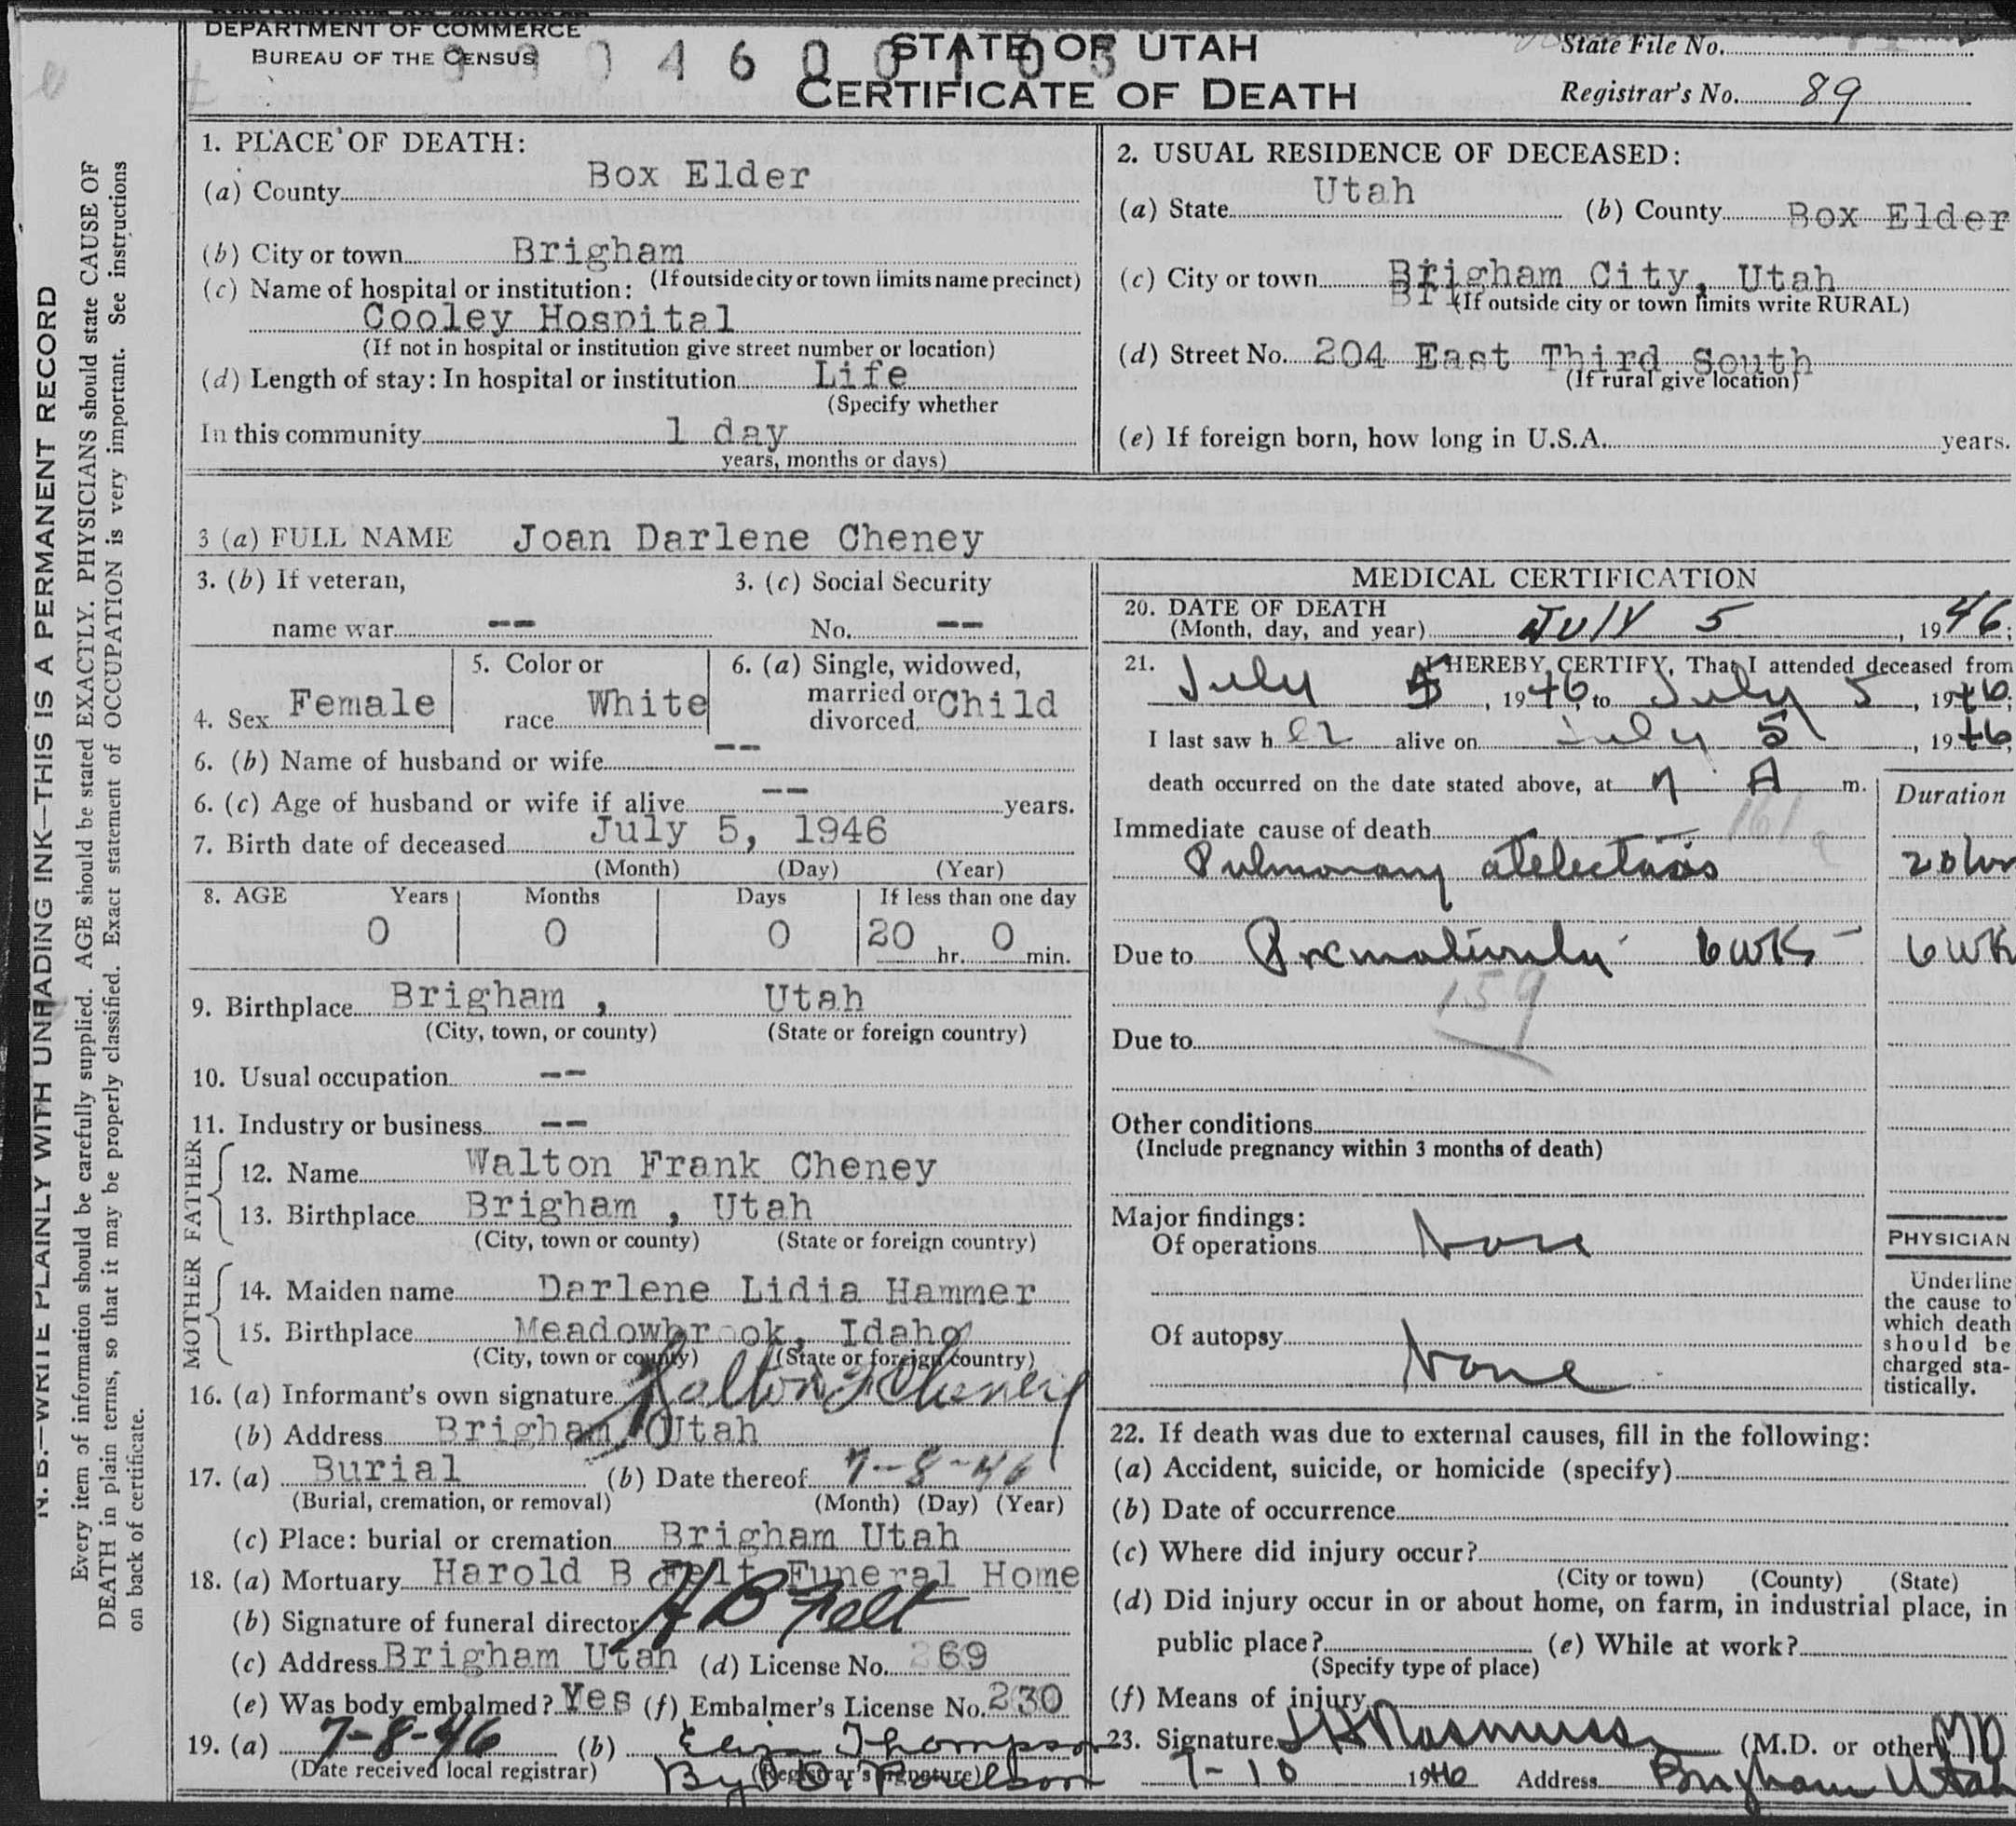 N. B.—WRITE PLAINLY WITH UNFADING INK—THIS IS A PERMANENT RECORD
Every item of information should be carefully supplied. AGE should be stated EXACTLY. PHYSICIANS should state CAUSE OF
DEATH in plain terms, so that it may be properly classified. Exact statement of OCCUPATION is very important. See instructions
on back of certificate.
DEPARTMENT OF COMMERCE
BUREAU OF THE CENSUS
STATE OF UTAH
CERTIFICATE OF DEATH
State File No.
Registrar's No. 89
1. PLACE OF DEATH:
(a) County Box Elder
(b) City or town Brigham
(If outside city or town limits name precinct)
(c) Name of hospital or institution:
Cooley Hospital
(If not in hospital or institution give street number or location)
(d) Length of stay: In hospital or institution Life
(Specify whether
In this community 1 day
years, months or days)
2. USUAL RESIDENCE OF DECEASED:
(a) State Utah (b) County Box Elder
(c) City or town Brigham City, Utah
(If outside city or town limits write RURAL)
(d) Street No. 204 East Third South
(If rural give location)
(e) If foreign born, how long in U.S.A. years.
3 (a) FULL NAME Joan Darlene Cheney
3. (b) If veteran,
name war --
3. (c) Social Security
No. --
4. Sex Female
5. Color or
race White
6. (a) Single, widowed,
married or
divorced Child
6. (b) Name of husband or wife --
6. (c) Age of husband or wife if alive -- years.
7. Birth date of deceased July 5, 1946
(Month) (Day) (Year)
8. AGE Years Months Days If less than one day
0 0 0 20 hr. 0 min.
9. Birthplace Brigham , Utah
(City, town, or county) (State or foreign country)
10. Usual occupation --
11. Industry or business --
FATHER
12. Name Walton Frank Cheney
13. Birthplace Brigham , Utah
(City, town or county) (State or foreign country)
MOTHER
14. Maiden name Darlene Lidia Hammer
15. Birthplace Meadowbrook, Idaho
(City, town or county) (State or foreign country)
16. (a) Informant's own signature Walton F Cheney
(b) Address Brigham, Utah
17. (a) Burial (b) Date thereof 7-8-46
(Burial, cremation, or removal) (Month) (Day) (Year)
(c) Place: burial or cremation Brigham Utah
18. (a) Mortuary Harold B Felt Funeral Home
(b) Signature of funeral director H B Felt
(c) Address Brigham Utah (d) License No. 69
(e) Was body embalmed? Yes (f) Embalmer's License No. 230
19. (a) 7-8-46 (b) Eliza Thompson
(Date received local registrar) (Registrar's signature)
MEDICAL CERTIFICATION
20. DATE OF DEATH
(Month, day, and year) July 5, 1946;
21. I HEREBY CERTIFY, That I attended deceased from
July 5, 1946, to July 5, 1946;
I last saw her alive on July 5, 1946;
death occurred on the date stated above, at 7 A m.
Duration
Immediate cause of death
Pulmonary atelectasis 20 hr
Due to Prematurely 6 wks 6 wk
159
Due to
Other conditions
(Include pregnancy within 3 months of death)
Major findings:
Of operations None
Of autopsy None
PHYSICIAN
Underline
the cause to
which death
should be
charged sta-
tistically.
22. If death was due to external causes, fill in the following:
(a) Accident, suicide, or homicide (specify)
(b) Date of occurrence
(c) Where did injury occur?
(City or town) (County) (State)
(d) Did injury occur in or about home, on farm, in industrial place, in
public place? (e) While at work?
(Specify type of place)
(f) Means of injury
23. Signature Rasmussen (M.D. or other) MD
7-10 1946 Address Brigham Utah